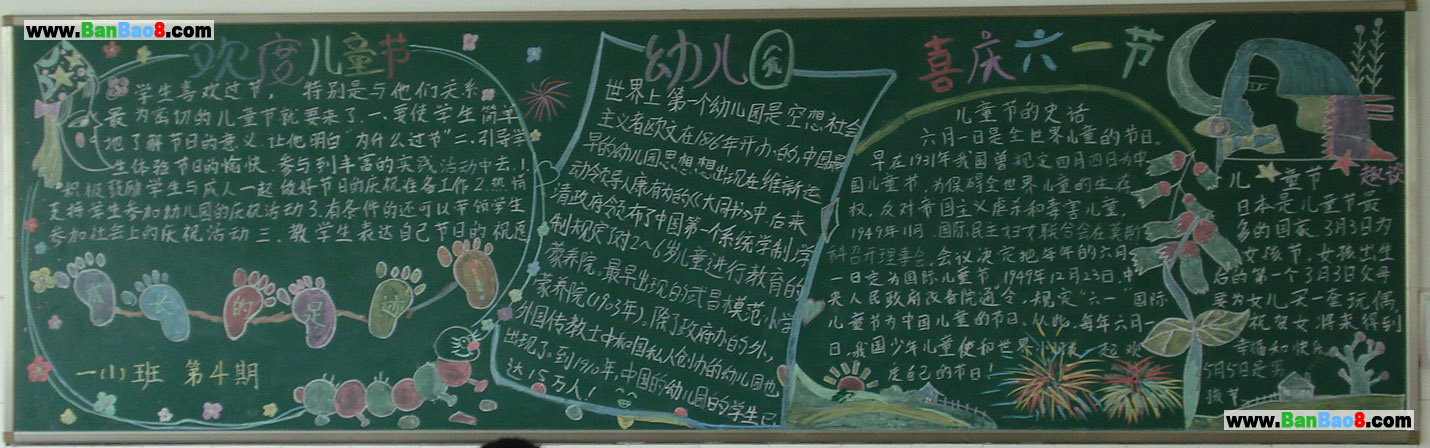 www.BanBao8.com
欢度儿童节
学生喜欢过节，特别是与他们关系
最为密切的儿童节就要来了.一、要使学生简单
地了解节日的意义.让他明白"为什么过节"二.引导学
生体验节日的愉快.参与到丰富的实践活动中去.1
积极鼓励学生与成人一起做好节日的庆祝准备工作2.热情
支持学生参加幼儿园的庆祝活动3.有条件的还可以节领学生
参加社会上的庆祝活动三.教学生表达自己节日的祝愿
成长的足迹!
一(1)班 第4期
幼儿园
世界上第一个幼儿园是空想社会
主义者欧文在1816年开办的,中国最
早的幼儿园思想想出现在维新运
动令领导人康有为的《大同书》中.后来
清政府颁布了中国第一个系统学制,学
制规定了对2~6岁儿童进行教育的
蒙养院。最早出现的武昌模范小学
蒙养院(1903年)。除了政府办的外,
外国传教士中和国私人创办的幼儿园也
出现了。到1910年,中国的幼儿园的学生已
达15万人!
喜庆六一节
儿童节的史话
六月一日是全世界儿童的节日。
早在1931年我国曾规定四月四日为中
国儿童节.为保障全世界儿童的生存
权，反对帝国主义虐杀和毒害儿童,
1949年11月.国际民主妇女联合会在莫斯
科召开理事会,会议决定把每年的六月
一日定为国际儿童节,1949年12月23日.中
央人民政府政务院通令,规定"六一"国际
儿童节为中国儿童的节日,从此,每年六月一
日.我国少年儿童便和世界儿童一起欢
度自己的节日!
儿童节趣谈
日本是儿童节最
多的国家.3月3日为
女孩节,女孩出生
后的第一个3月3日父母
要为女儿买一套玩偶,
祝贺女将来得到
幸福和快乐。
5月5日是男
孩节
www.BanBao8.com